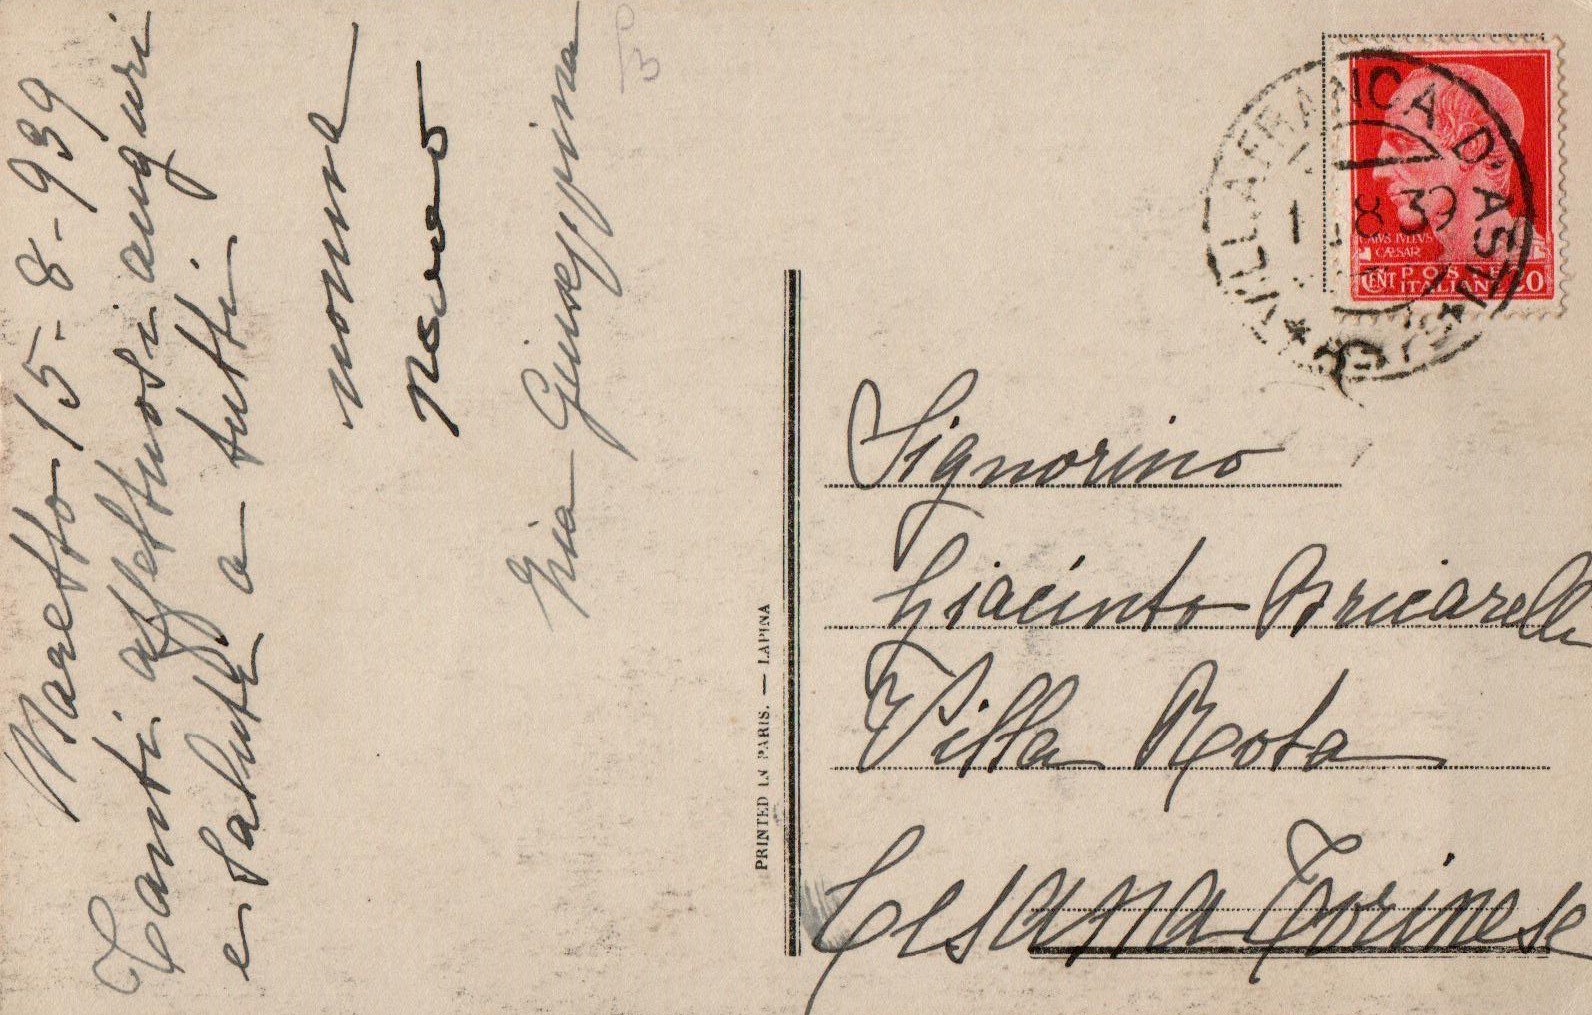 Maretto 15-8-939
Tanti affettuosi auguri
e saluti a tutti
nonna
zia Giuseppina
PRINTED IN PARIS. — LAPINA
VILLAFRANCA D'ASTI
8 39
CAIVS IVLIVS
CÆSAR
CENT POSTE
ITALIANE 20
Signorino
Giacinto Bricarelli
Villa Rota
Cesana Torinese